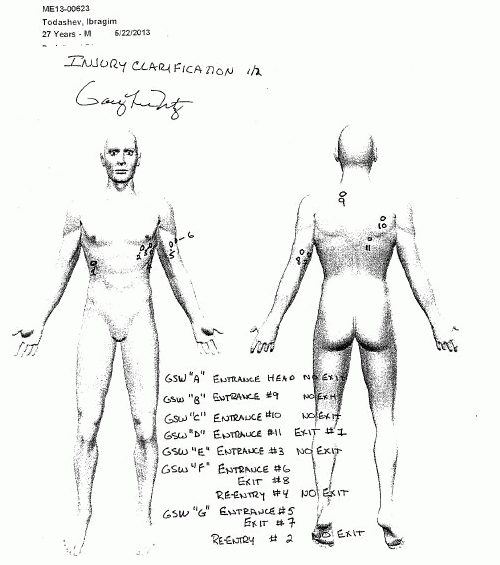 ME13-00623
Todashev, Ibragim
27 Years - M 5/22/2013
INJURY CLARIFICATION 1/2
6
5
9
10
11
8
7
GSW "A" ENTRANCE HEAD NO EXIT
GSW "B" ENTRANCE #9 NO EXIT
GSW "C" ENTRANCE #10 NO EXIT
GSW "D" ENTRANCE #11 EXIT #1
GSW "E" ENTRANCE #3 NO EXIT
GSW "F" ENTRANCE #6
EXIT #8
RE-ENTRY #4 NO EXIT
GSW "G" ENTRANCE #5
EXIT #7
RE-ENTRY # 2 NO EXIT